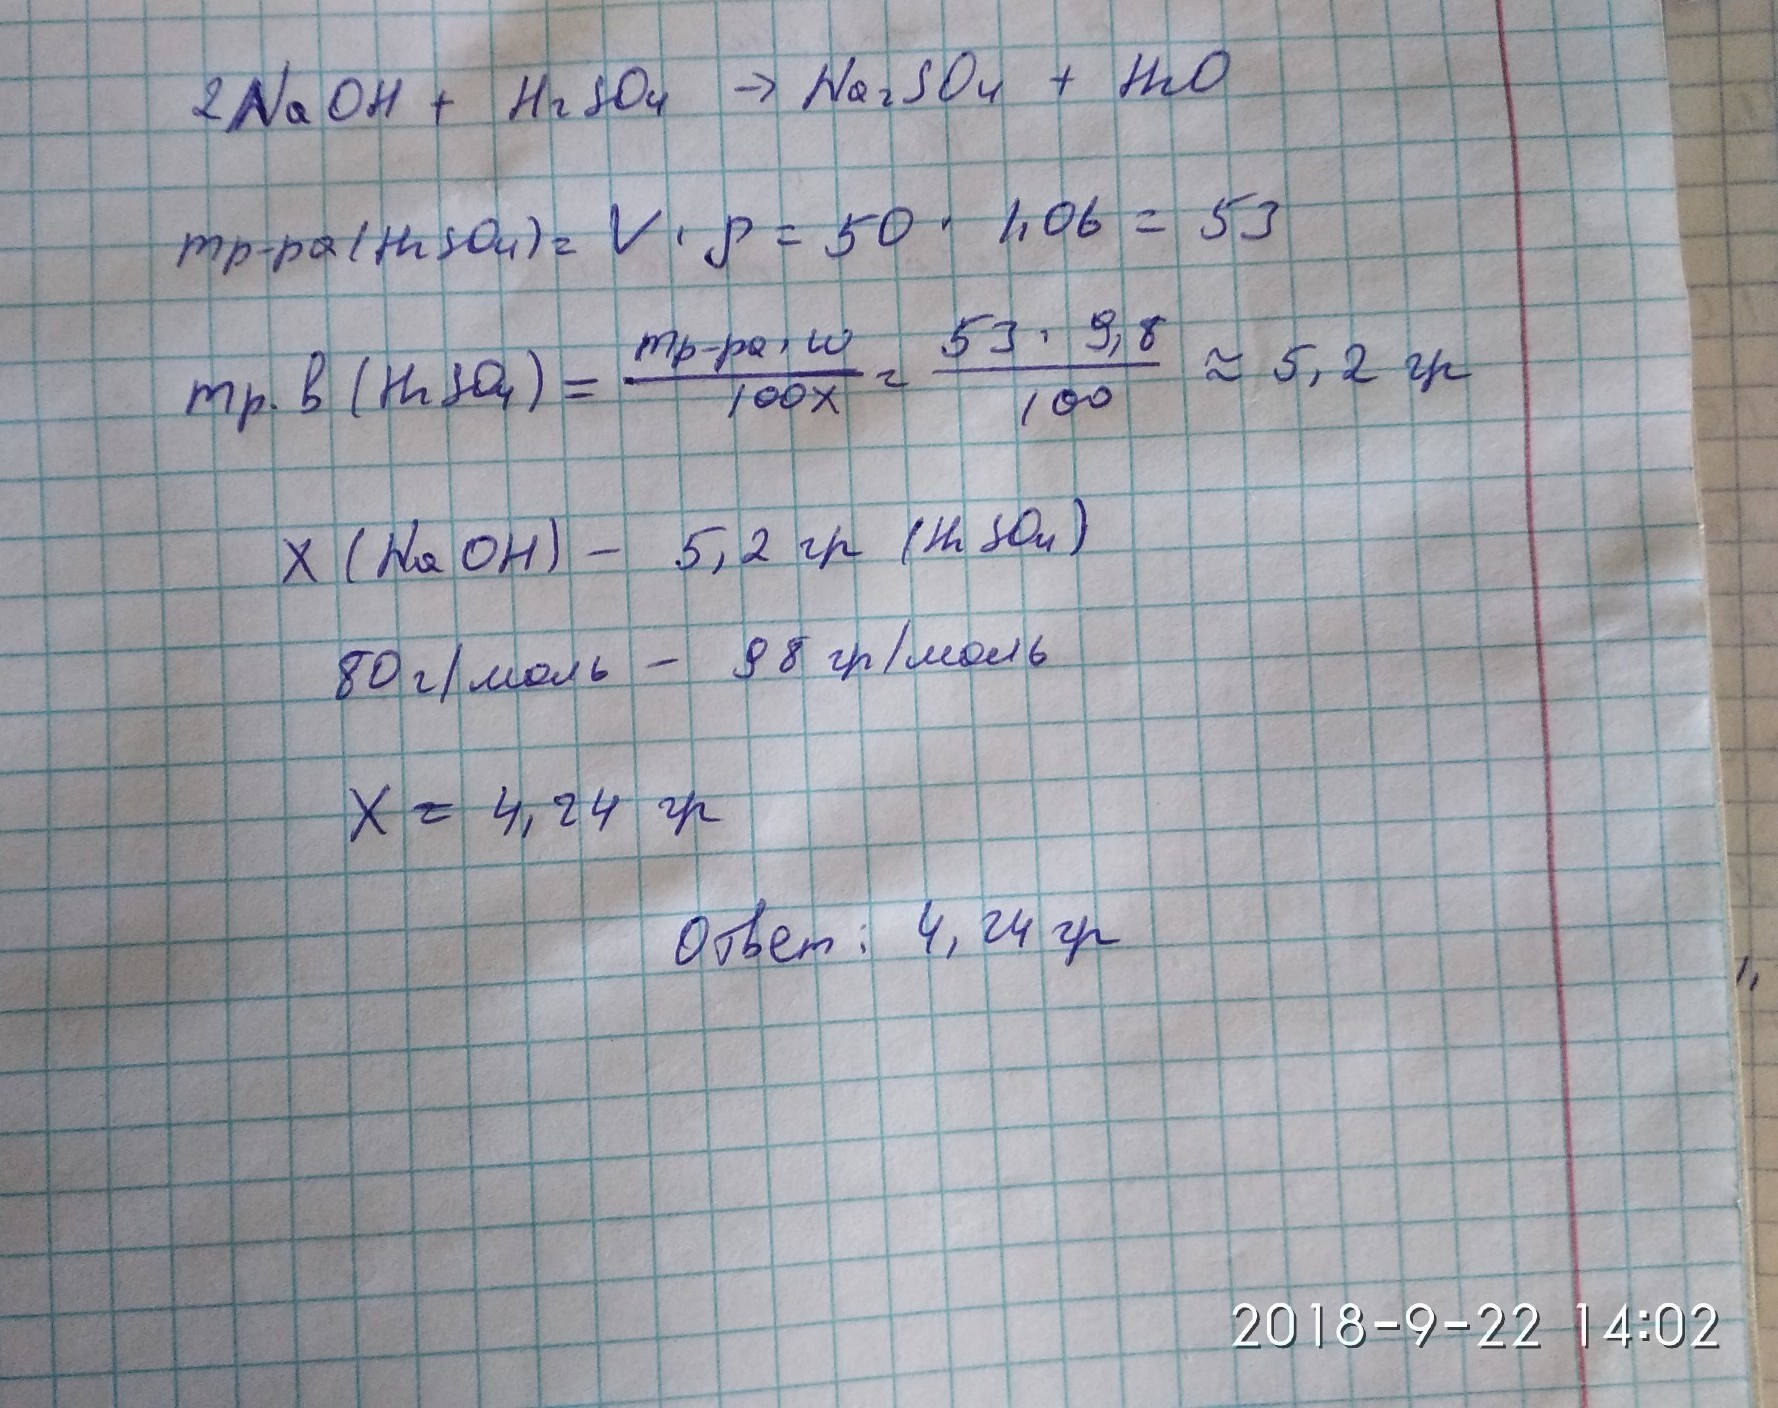 2NaOH + H₂SO₄ → Na₂SO₄ + H₂O
mр-ра(H₂SO₄) = V · ρ = 50 · 1,06 = 53
mр.в (H₂SO₄) = mр-ра · w / 100% = 53 · 9,8 / 100 ≈ 5,2 гр
X (NaOH) – 5,2 гр (H₂SO₄)
80 г/моль – 98 гр/моль
X = 4,24 гр
Ответ: 4,24 гр
2018-9-22 14:02